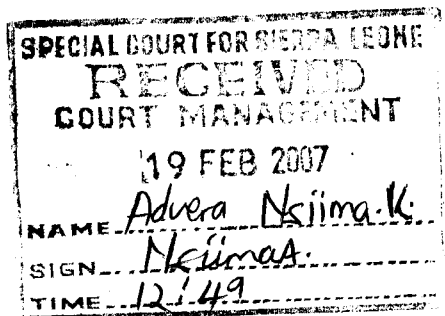 SPECIAL COURT FOR SIERRA LEONE
RECEIVED
COURT MANAGEMENT
19 FEB 2007
NAME Advera Nsiima.K.
SIGN NsiimaA.
TIME 12:49